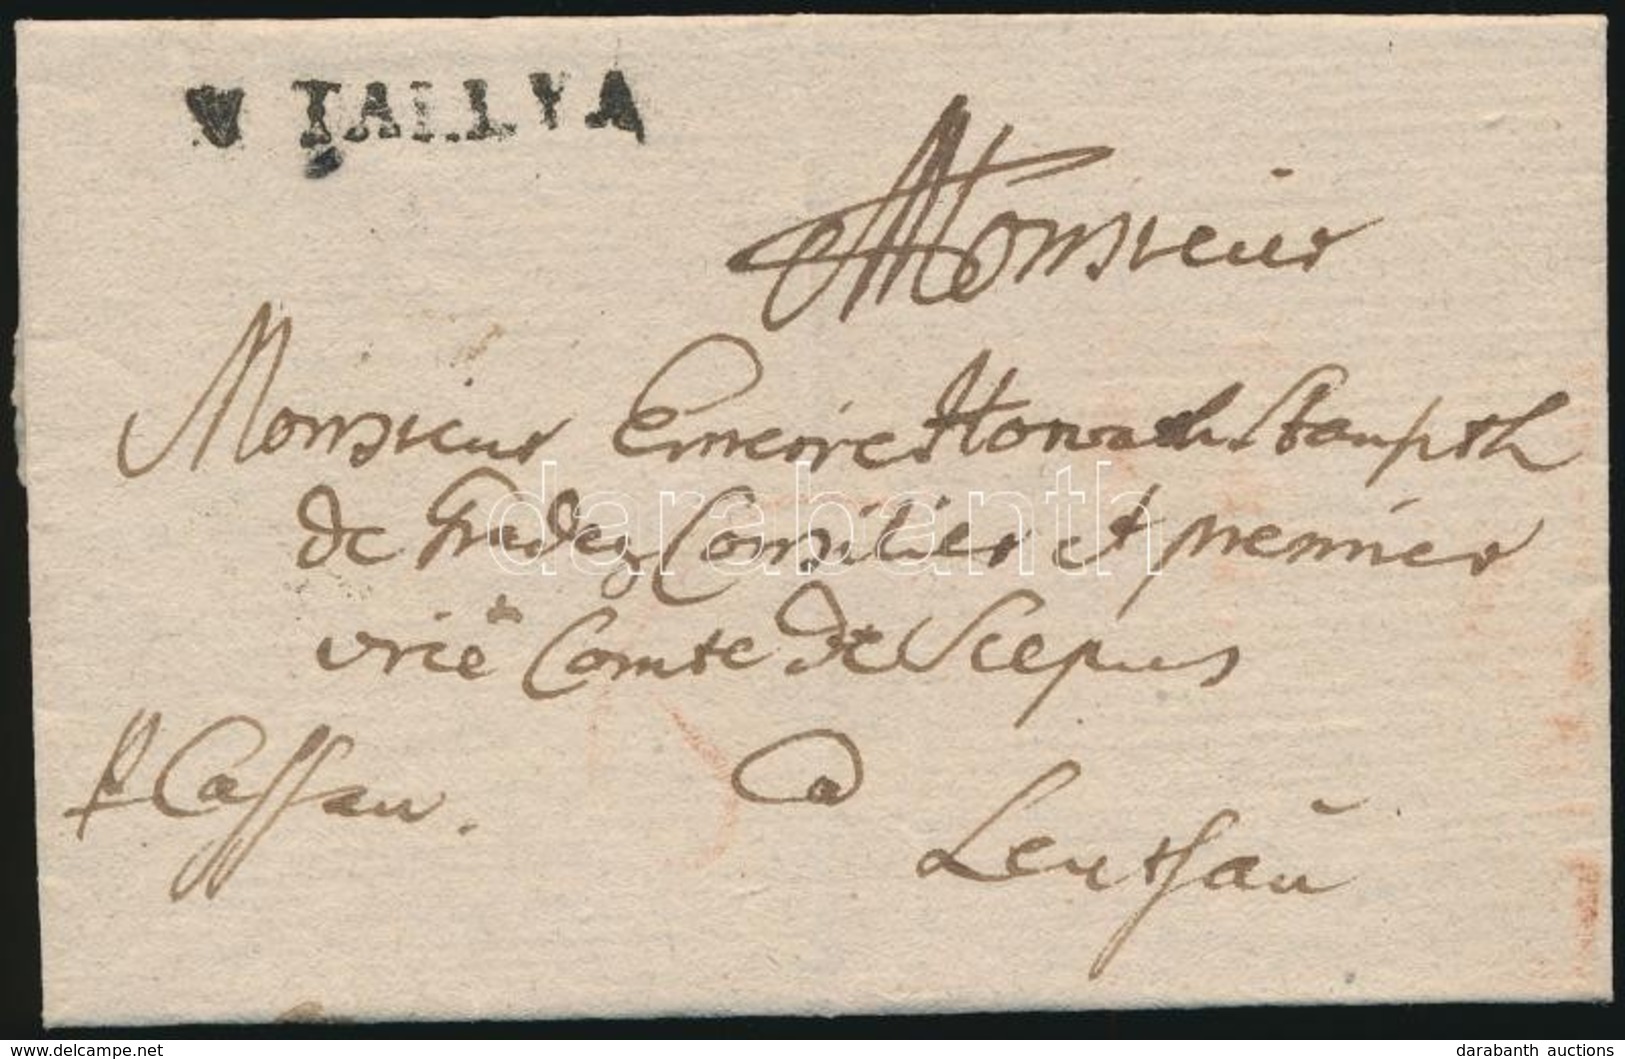 v TALLYA
Monsieur
Monsieur Emeric Horvath Staupsth
de Gradez Consilier et premier
vice Comte de Scepus
p Cassau.
a
Leutschau
darabanth
www.delcampe.net
darabanth auctions